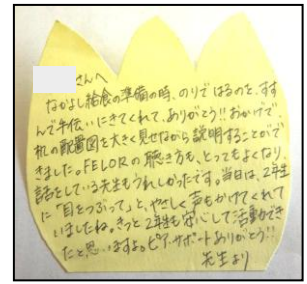 さんへ
なかよし給食の準備の時、のりではるのを、すす
んで手伝いにきてくれて、ありがとう!!おかげで、
机の配置図を大きく見せながら説明することがで
きました。FELORの聴き方も、とってもよくなり、
話をしている先生もうれしかったです。当日は、2年生
に「目をつぶって」と、やさしく声もかけてくれて
いましたね。きっと2年生も安心して活動でき
たと思いますよ。ピア・サポートありがとう!!
先生より